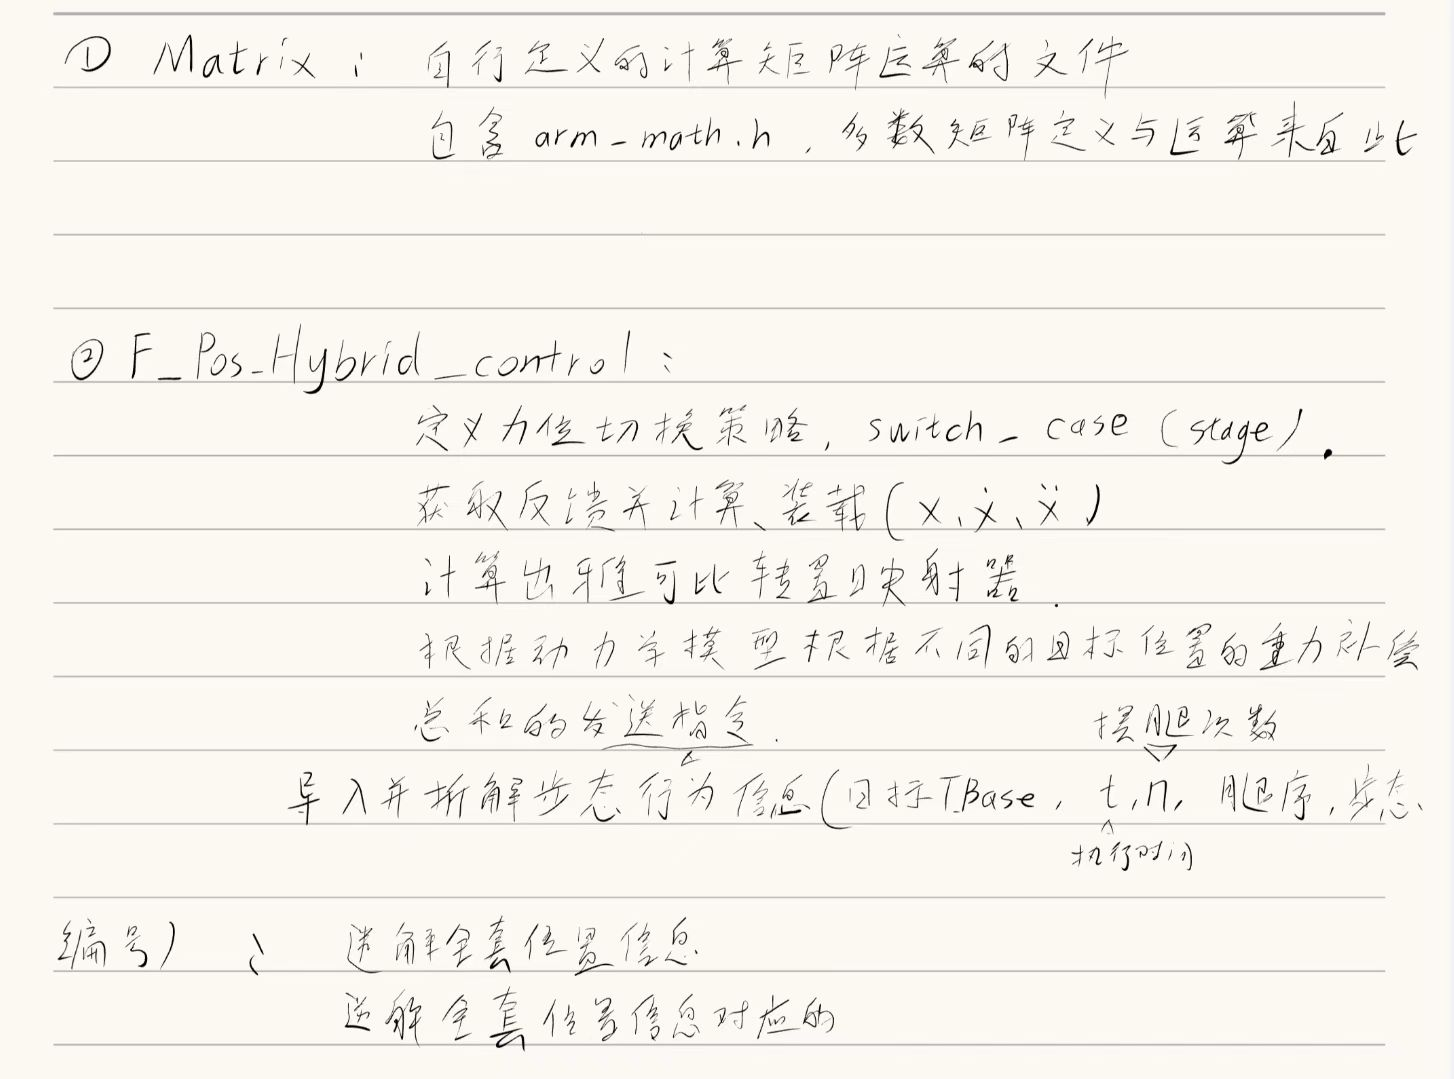 ① Matrix: 自行定义的计算矩阵运算的文件
包含 arm_math.h, 多数矩阵定义与运算来自此
② F_Pos_Hybrid_control:
定义力位切换策略, switch_case (stage).
获取反馈并计算、装载(x、ẋ、ẍ)
计算出雅可比转置映射器.
根据动力学模型根据不同的目标位置的重力补偿
总和的发送指令.
摆腿次数
导入并拆解步态行为信息(目标TBase, t,n, 腿序, 步态
执行时间
编号)
逆解全套位置信息
逆解全套位置信息对应的